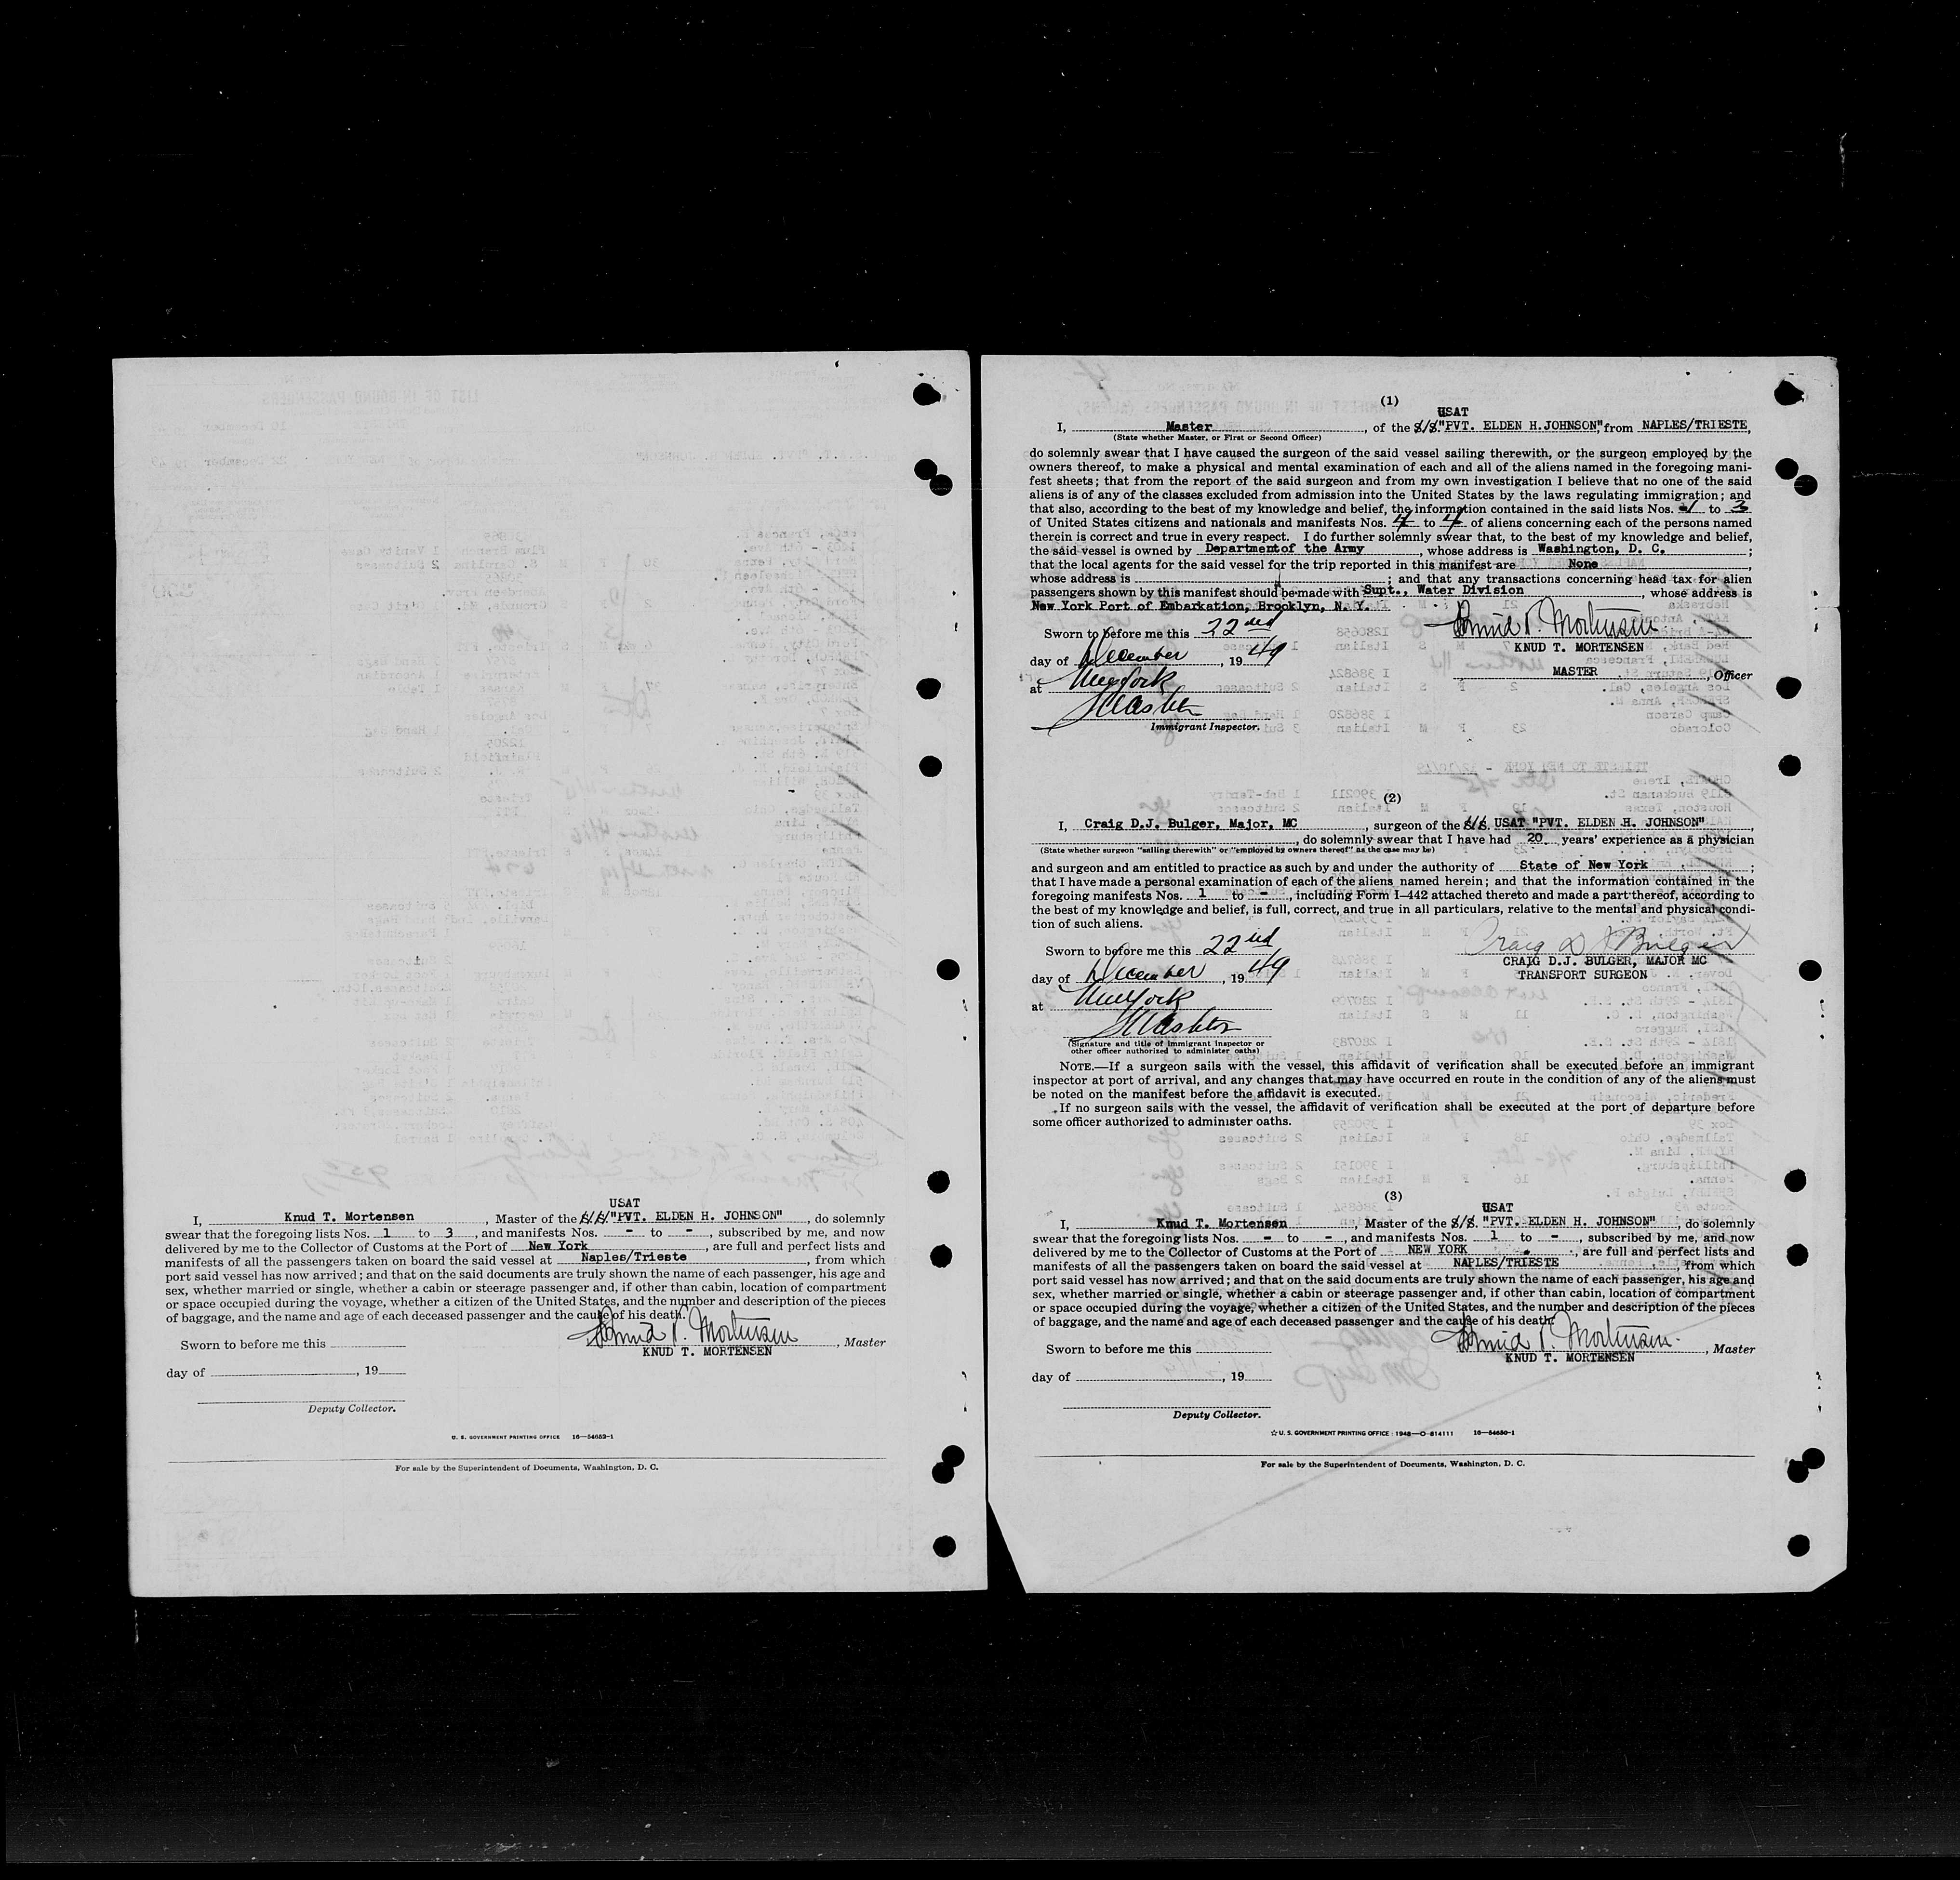 USAT
I, Knud T. Mortensen, Master of the S.S. "PVT. ELDEN H. JOHNSON", do solemnly
swear that the foregoing lists Nos. 1 to 3, and manifests Nos. - to -, subscribed by me, and now
delivered by me to the Collector of Customs at the Port of New York, are full and perfect lists and
manifests of all the passengers taken on board the said vessel at Naples/Trieste, from which
port said vessel has now arrived; and that on the said documents are truly shown the name of each passenger, his age and
sex, whether married or single, whether a cabin or steerage passenger and, if other than cabin, location of compartment
or space occupied during the voyage, whether a citizen of the United States, and the number and description of the pieces
of baggage, and the name and age of each deceased passenger and the cause of his death.
Knud T. Mortensen
Sworn to before me this , Master
KNUD T. MORTENSEN
day of , 19
Deputy Collector.
U. S. GOVERNMENT PRINTING OFFICE 16—54652-1
For sale by the Superintendent of Documents, Washington, D. C.
(1)
USAT
I, Master, of the S/S. "PVT. ELDEN H. JOHNSON", from NAPLES/TRIESTE,
(State whether Master, or First or Second Officer)
do solemnly swear that I have caused the surgeon of the said vessel sailing therewith, or the surgeon employed by the
owners thereof, to make a physical and mental examination of each and all of the aliens named in the foregoing mani-
fest sheets; that from the report of the said surgeon and from my own investigation I believe that no one of the said
aliens is of any of the classes excluded from admission into the United States by the laws regulating immigration; and
that also, according to the best of my knowledge and belief, the information contained in the said lists Nos. 1 to 3
of United States citizens and nationals and manifests Nos. 4 to 4 of aliens concerning each of the persons named
therein is correct and true in every respect. I do further solemnly swear that, to the best of my knowledge and belief,
the said vessel is owned by Department of the Army, whose address is Washington, D. C. ;
that the local agents for the said vessel for the trip reported in this manifest are None,
whose address is ; and that any transactions concerning head tax for alien
passengers shown by this manifest should be made with Supt., Water Division, whose address is
New York Port of Embarkation, Brooklyn, N. Y.
Sworn to before me this 22nd Knud T. Mortensen
KNUD T. MORTENSEN
day of December, 1949
MASTER, Officer
at New York
Immigrant Inspector.
(2)
I, Craig D.J. Bulger, Major, MC, surgeon of the S/S. USAT "PVT. ELDEN H. JOHNSON",
, do solemnly swear that I have had 20 years' experience as a physician
(State whether surgeon "sailing therewith" or "employed by owners thereof" as the case may be)
and surgeon and am entitled to practice as such by and under the authority of State of New York ;
that I have made a personal examination of each of the aliens named herein; and that the information contained in the
foregoing manifests Nos. 1 to -, including Form I-442 attached thereto and made a part thereof, according to
the best of my knowledge and belief, is full, correct, and true in all particulars, relative to the mental and physical condi-
tion of such aliens.
Sworn to before me this 22nd Craig D J Bulger
CRAIG D.J. BULGER, MAJOR MC
day of December, 1949 TRANSPORT SURGEON
at New York
(Signature and title of immigrant inspector or
other officer authorized to administer oaths)
NOTE.—If a surgeon sails with the vessel, this affidavit of verification shall be executed before an immigrant
inspector at port of arrival, and any changes that may have occurred en route in the condition of any of the aliens must
be noted on the manifest before the affidavit is executed.
If no surgeon sails with the vessel, the affidavit of verification shall be executed at the port of departure before
some officer authorized to administer oaths.
(3)
USAT
I, Knud T. Mortensen, Master of the S/S. "PVT. ELDEN H. JOHNSON", do solemnly
swear that the foregoing lists Nos. - to -, and manifests Nos. 1 to -, subscribed by me, and now
delivered by me to the Collector of Customs at the Port of NEW YORK, are full and perfect lists and
manifests of all the passengers taken on board the said vessel at NAPLES/TRIESTE, from which
port said vessel has now arrived; and that on the said documents are truly shown the name of each passenger, his age and
sex, whether married or single, whether a cabin or steerage passenger and, if other than cabin, location of compartment
or space occupied during the voyage, whether a citizen of the United States, and the number and description of the pieces
of baggage, and the name and age of each deceased passenger and the cause of his death.
Knud T. Mortensen
Sworn to before me this , Master
KNUD T. MORTENSEN
day of , 19
Deputy Collector.
☆ U. S. GOVERNMENT PRINTING OFFICE : 1948—O-814111 16—54650-1
For sale by the Superintendent of Documents, Washington, D. C.